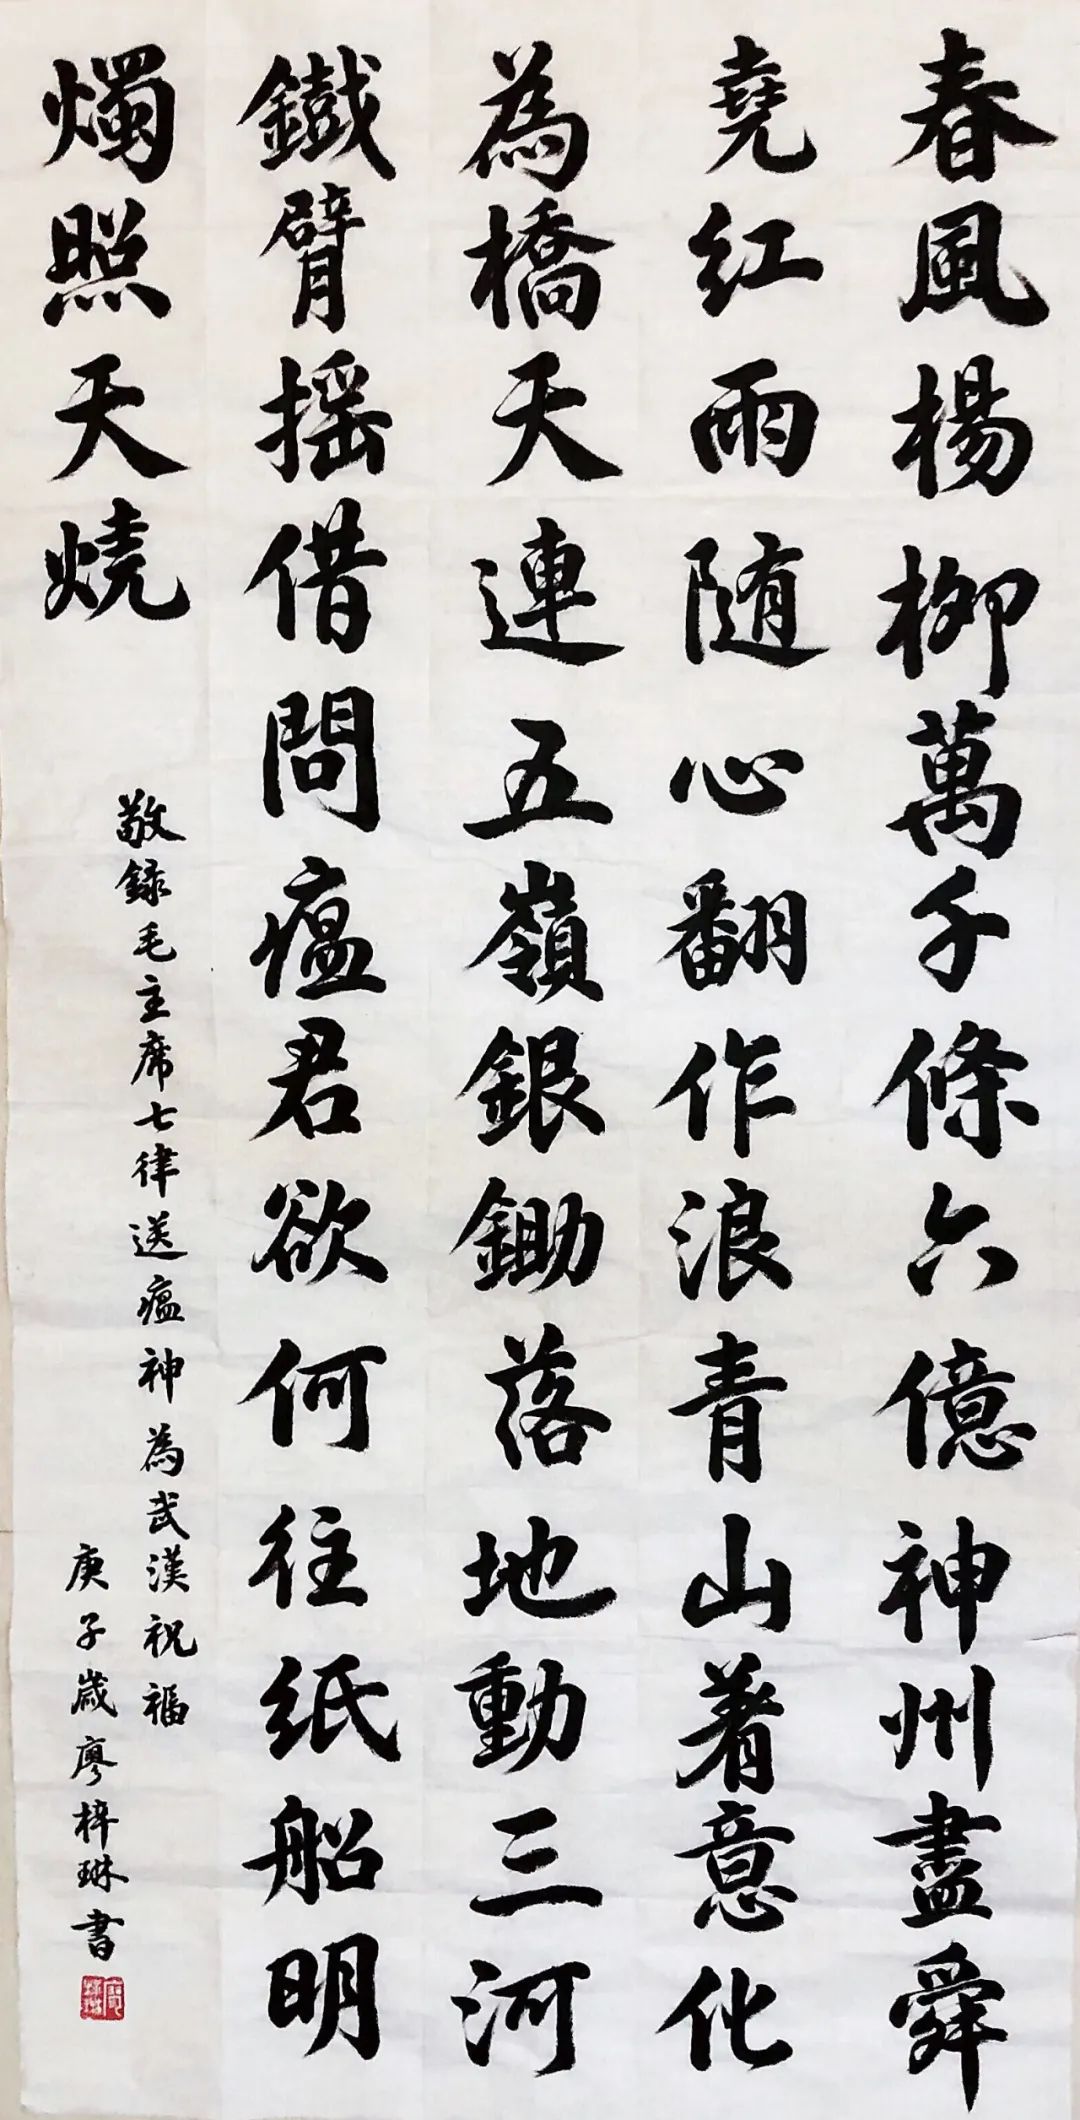 春風楊柳萬千條六億神州盡舜
堯紅雨随心翻作浪青山著意化
為橋天連五嶺銀鋤落地動三河
鐵臂搖借問瘟君欲何往紙船明
燭照天燒
敬録毛主席七律送瘟神為武漢祝福
庚子歲廖梓琳書